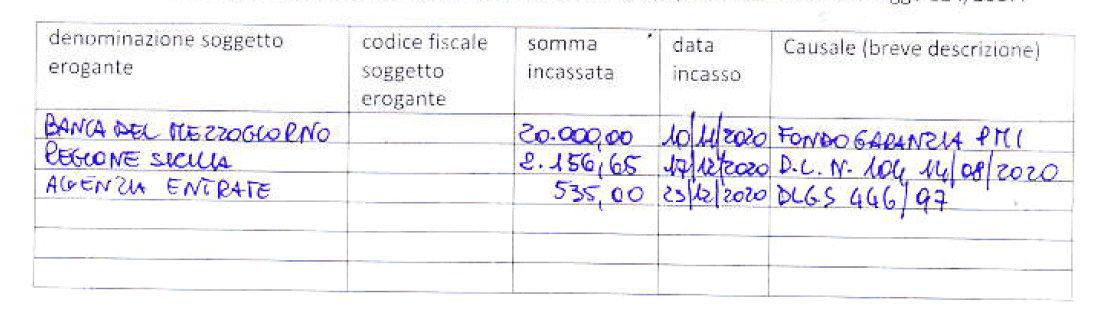 denominazione soggetto erogante codice fiscale soggetto erogante somma incassata data incasso Causale (breve descrizione)
BANCA DEL MEZZOGIORNO 20.000,00 10/11/2020 FONDO GARANZIA PMI
REGIONE SICILIA 2.156,65 17/12/2020 D.L. N. 104 14/08/2020
AGENZIA ENTRATE 535,00 23/12/2020 DLGS 446/97